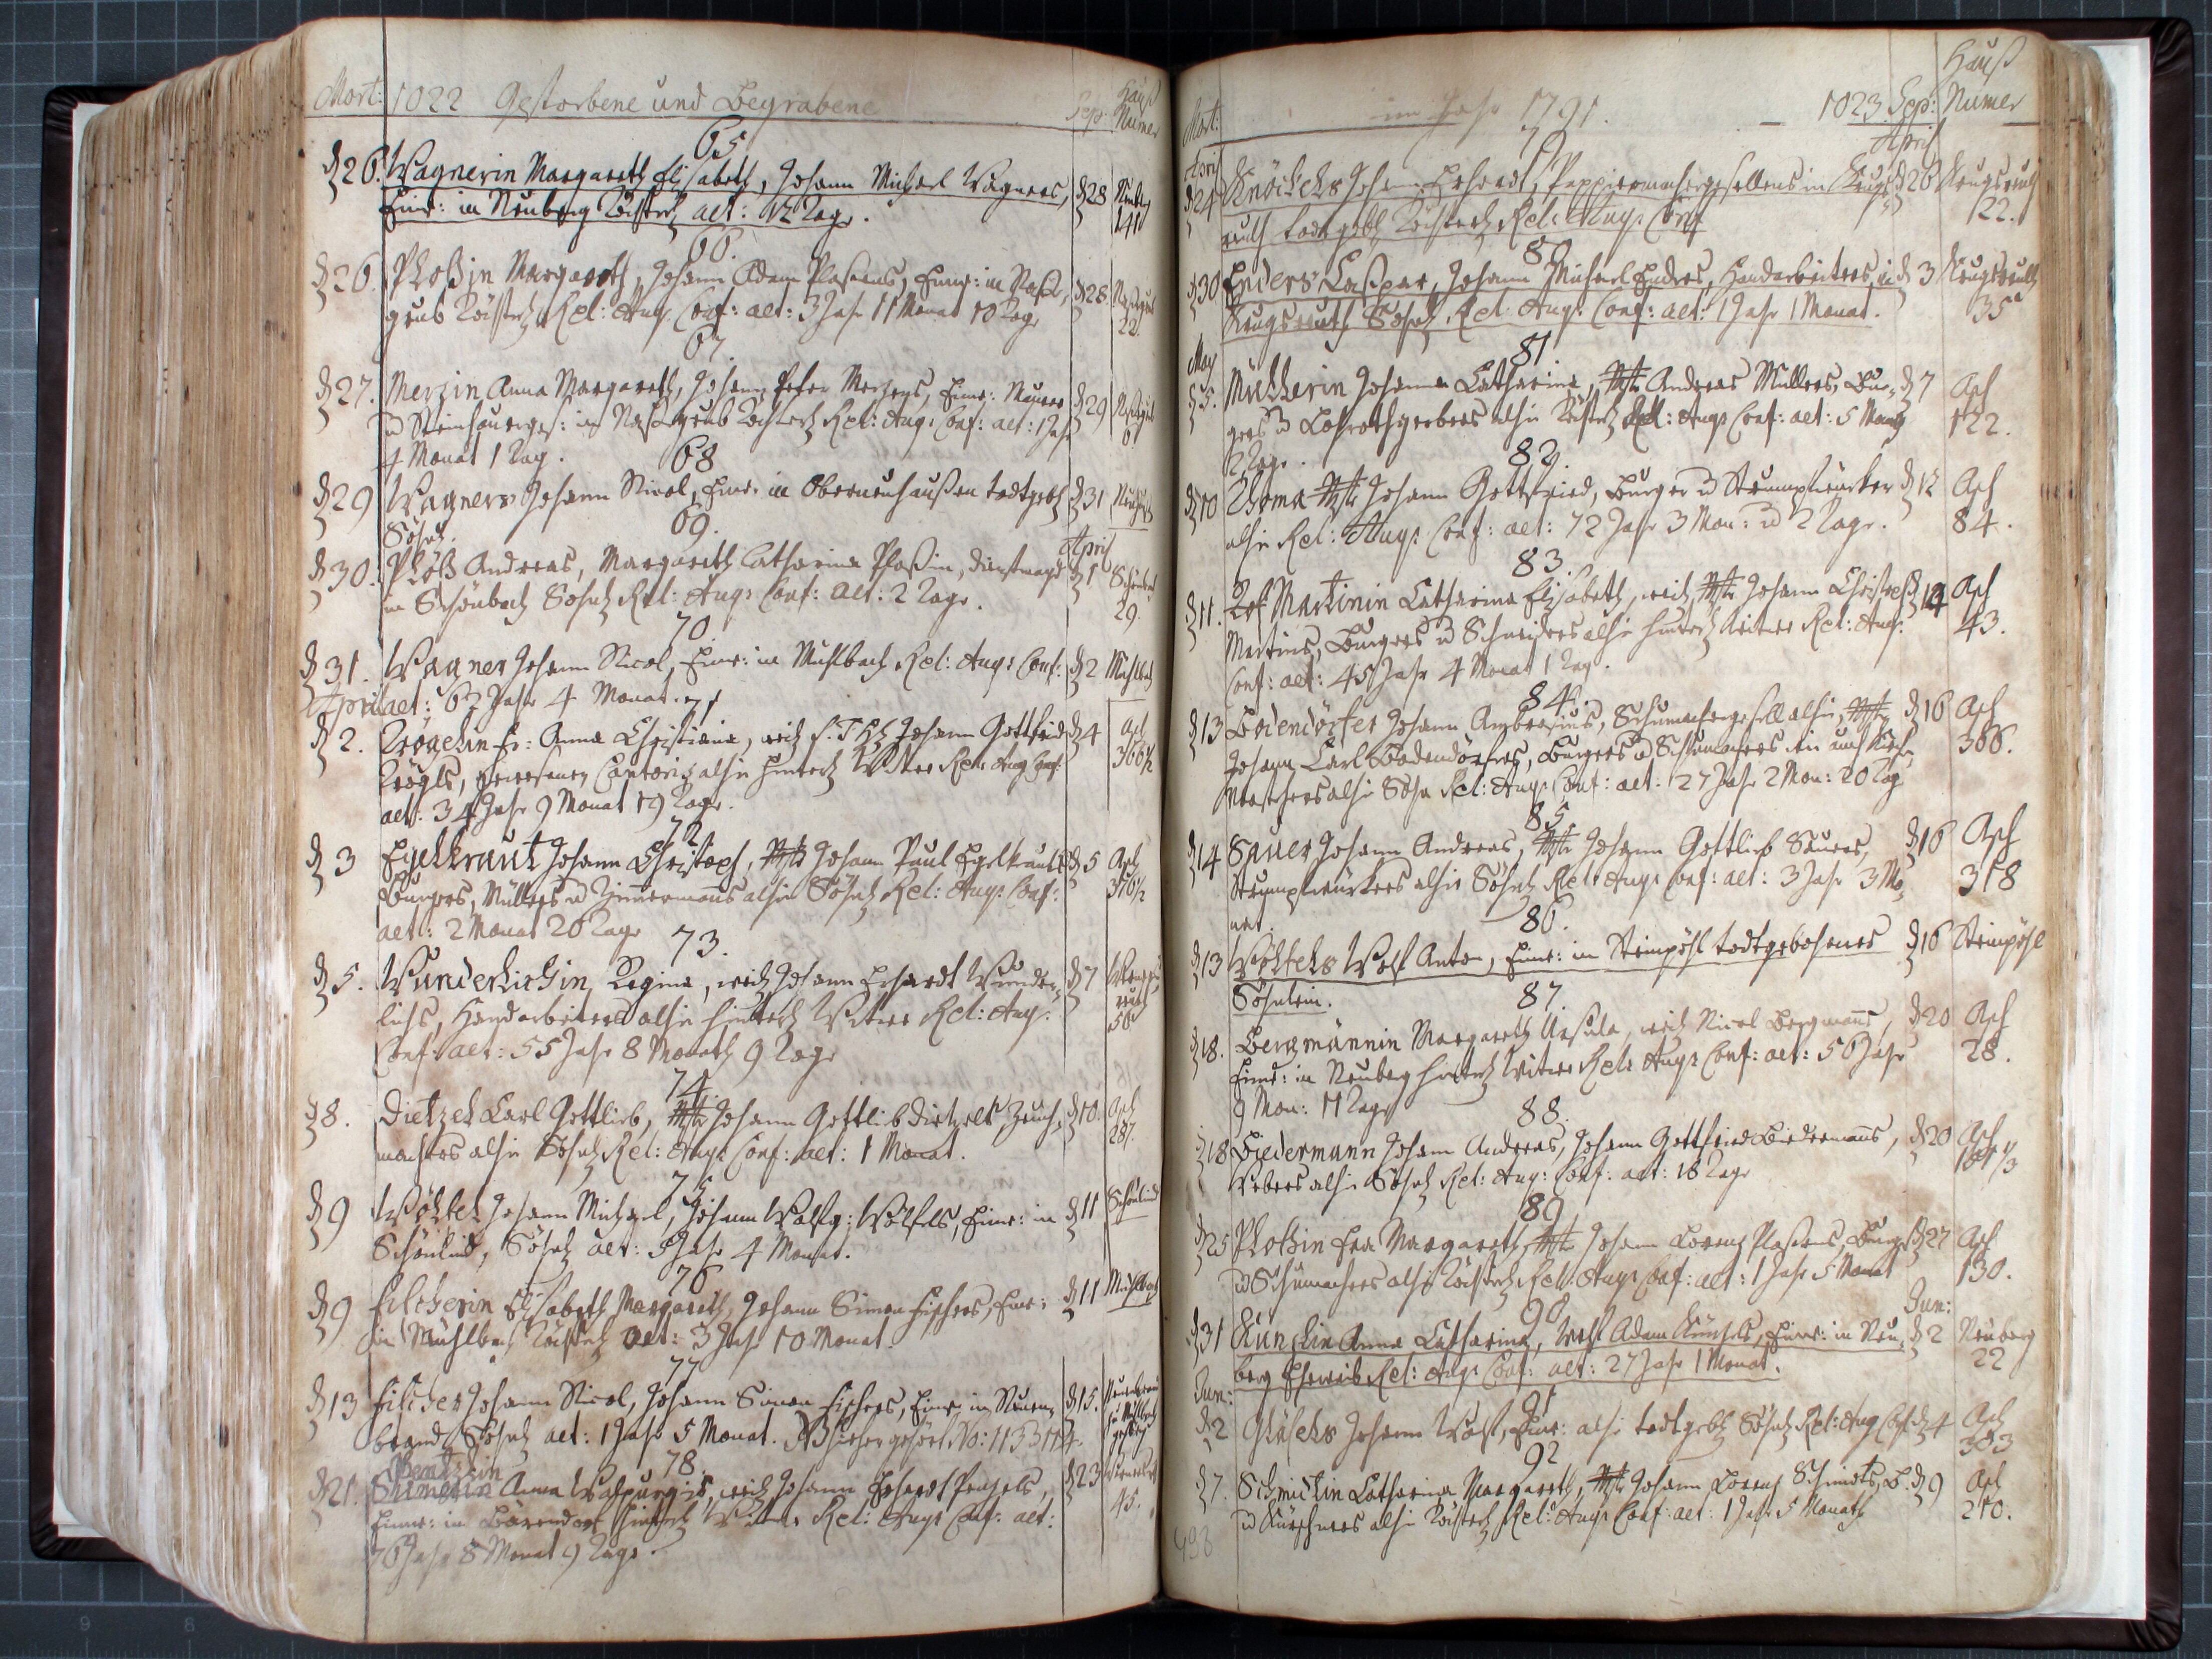 Mort: 1022 Gestorbene und Begrabene Sep: Hauß Numer
65
d 26. Wagnerin Margareth Elisabeth, Johann Michael Wagners, d 28 Neuberg
Einw: in Neuberg Töchterl: aet: 12 Tage. 141
66.
d 26. Ploßin Margareth, Johann Adam Ploßens, Einw: in Naßen- d 28.
grub Töchterl: Rel: Aug: Conf: aet: 3 Jahr 11 Monat 10 Tage 22
67.
d 27. Merzin Anna Margareth, Johann Peter Merzens, Einw: Maurer d 29
u Steinhauerges: in Naßengrub Töchterl: Rel: Aug: Conf: aet: 1 Jahr 61
4 Monat 1 Tag.
68
d 29 Wagners Johann Nicol, Einw: in Oberneuhaußen todtgeb: d 31
Söhnl.
69. April
d 30. Ploß Andreas, Margareth Catharina Ploßin, Dienstmagd d 1 Schönbach
in Schönbach Söhnl: Rel: Aug: Conf: aet: 2 Tage. 29.
70.
d 31. Wagner Johann Nicol, Einw: in Mühlbach Rel: Aug: Conf: d 2 Mühlbach
April aet: 62 Jahr 4 Monat. 71
d 2. Krögelin Fr: Anna Christiana, weil: Johann Gottfried d 4 Asch
Krögls, gewesenen Cantoris alhie hinterl: Witwe Rel: Aug: Conf: 366 1/2
aet: 34 Jahr 9 Monat 19 Tage.
72
d 3 Egelkraut Johann Christoph, Mstr Johann Paul Egelkrauts d 5 Asch
Burgers, Müllers u Zimmermanns alhie Söhnl: Rel: Aug: Conf: 376 1/2
aet: 2 Monat 26 Tage
73.
d 5. Wunderlichin Regina, weil: Johann Erhardt Wunder- d 7
lichs, Handarbeiters alhie hinterl: Witwe Rel: Aug: reuth
Conf: aet: 55 Jahr 8 Monath 9 Tage 56
74.
d 8. Dietzel Carl Gottlieb, Mstr Johann Gottlieb Dietzels Zeuch- d 10. Asch
machers alhie Söhnl: Rel: Aug: Conf: aet: 1 Monat. 287.
75
d 9 Wölfel Johann Michael, Johann Wolfg: Wölfels, Einw: in d 11 Schönlind
Schönlind, Söhnl: aet: Jahr 4 Monat.
76
d 9 Fischerin Elisabeth Margareth, Johann Simon Fischers, Einw: d 11 Mühlbach
in Mühlbach Töchterl: aet: 3 Jahr 10 Monat.
77
d 13 Fischer Johann Nicol, Johann Simon Fischers, Einw: in Neuen- d 15. Neuenbrand
brand Söhnl: aet: 1 Jahr 5 Monat. NB hieher gehört No: 113 114.
Penzelin 78.
d 21. Anna Walpurgis, weil: Johann Erhardt Penzels, d 23
Einw: in Bärendorf hinterl: Witwe Rel: Aug: Conf: aet: 45.
76 Jahr 8 Monat 9 Tage.
Mort: im Jahr 1791. 1023. Sep: Hauß Numer
April 79 April
d 24 Knöckels Johann Erhardt, Pappiermachergesellens in Krugs- d 26 Krugsreuth
reuth todtgeb: Töchterl: Rel: Aug: Conf 22.
80
d 30 Enders Caßpar, Johann Michael Enders, Handarbeiters in d 3 Krugsreuth
Krugsreuth Söhnl: Rel: Aug: Conf: aet: 1 Jahr 1 Monat. 35
May 81.
d 5. Müllerin Johanna Catharina, Mstr Andreas Müllers, Bur- d 7 Asch
gers u Lohrothgerbers alhie Töchterl: Rel: Aug: Conf: aet: 5 Monat 122.
2 Tage.
82.
d 10 Thoma Mstr Johann Gottfried, Burger u Strumpfwürker d 12 Asch
alhie Rel: Aug: Conf: aet: 72 Jahr 3 Mon: u 2 Tage. 84.
83.
d 11. Martinin Catharina Elisabeth, weil: Mstr Johann Christoph d 14 Asch
Martins, Burgers u Schneiders alhie hinterl: Witwe Rel: Aug: 43.
Conf: aet: 45 Jahr 4 Monat 1 Tag.
84.
d 13 Bodendörfer Johann Ambrosius, Schumachergesell alhie, Mstr d 16 Asch
Johann Carl Bodendörfers, Burgers u Schumachers 366.
alhie Sohn Rel: Aug: Conf: aet: 27 Jahr 2 Mon: 20 Tag
85.
d 14 Sauer Johann Andreas, Mstr Johann Gottlieb Sauers, d 16 Asch
Strumpfwürkers alhie Söhnl: Rel: Aug: Conf: aet: 3 Jahr 3 Mo- 318
nat.
86.
d 13 Wölfels Wolf Anton, Einw: in Steinpöhl todtgebohrnes d 16 Steinpöhl
Söhnlein.
87.
d 18. Bergmännin Margareth Ursula, weil: Nicol Bergmanns, d 20 Asch
Einw: in Neuberg hinterl: Witwe Rel: Aug: Conf: aet: 56 Jahr 28.
9 Mon: 11 Tage
88.
d 18 Biedermann Johann Andreas, Johann Gottfried Biedermanns, d 20 Asch
Webers alhie Söhnl: Rel: Aug: Conf: aet: 18 Tage
89
d 25 Ploßin Eva Margareth, Mstr Johann Lorenz Ploßens, Burgers d 27 Asch
u Schumachers alhie Töchterl: Rel: Aug: Conf: aet: 1 Jahr 5 Monat 130.
90 Jun:
d 31 Künzlin Anna Catharina, Wolf Adam Künzels, Einw: in Neu- d 2 Neuberg
berg Eheweib Rel: Aug: Conf: aet: 27 Jahr 1 Monat. 22
Jun: 91
d 2 Gläsels Johann Wolf, Einw: alhie todtgeb: Söhnl: Rel: Aug: Conf: d 4 Asch
92 303
d 7. Schmidtin Catharina Margareth, Mstr Johann Lorenz Schmidts, B. d 9 Asch
u Kürschners alhie Töchterl: Rel: Aug: Conf: aet: 1 Jahr 5 Monath 210.
498